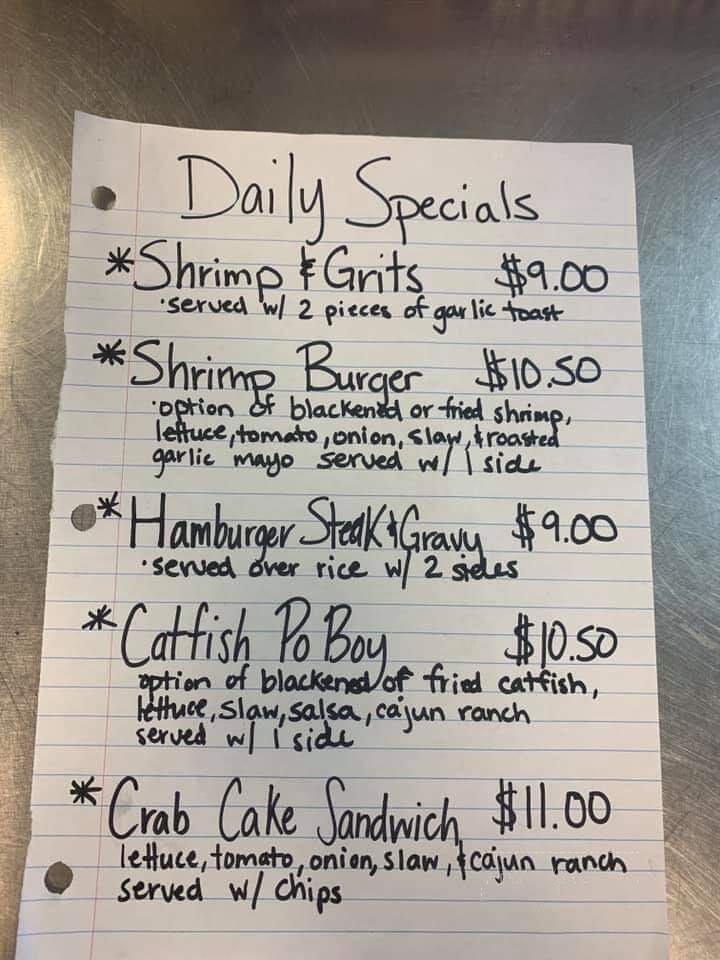 Daily Specials
*Shrimp & Grits $9.00
·served w/ 2 pieces of garlic toast
*Shrimp Burger $10.50
·option of blackened or fried shrimp,
lettuce, tomato, onion, slaw, & roasted
garlic mayo served w/ 1 side
*Hamburger Steak & Gravy $9.00
·served over rice w/ 2 sides
*Catfish Po Boy $10.50
option of blackened of fried catfish,
lettuce, slaw, salsa, cajun ranch
served w/ 1 side
*Crab Cake Sandwich $11.00
lettuce, tomato, onion, slaw, & cajun ranch
served w/ chips